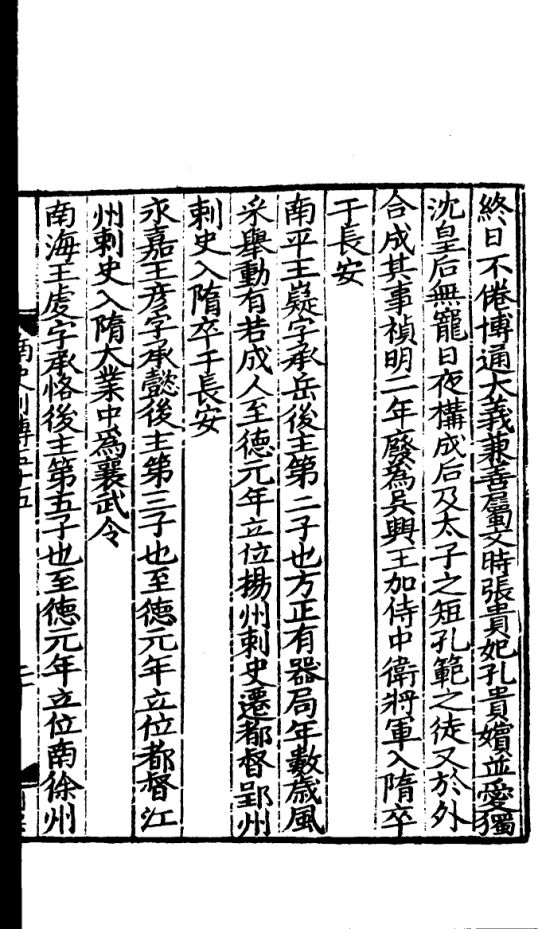 終日不倦博通大義兼善屬文時張貴妃孔貴嬪並愛獨
沈皇后無寵日夜構成后及太子之短孔範之徒又於外
合成其事禎明二年廢為吳興王加侍中衛將軍入隋卒
于長安
南平王嶷字承岳後主第二子也方正有器局年數歲風
采舉動有若成人至德元年立位揚州刺史遷都督郢州
刺史入隋卒于長安
永嘉王彥字承懿後主第三子也至德元年立位都督江
州刺史入隋大業中為襄武令
南海王虔字承恪後主第五子也至德元年立位南徐州
南史列傳五十五